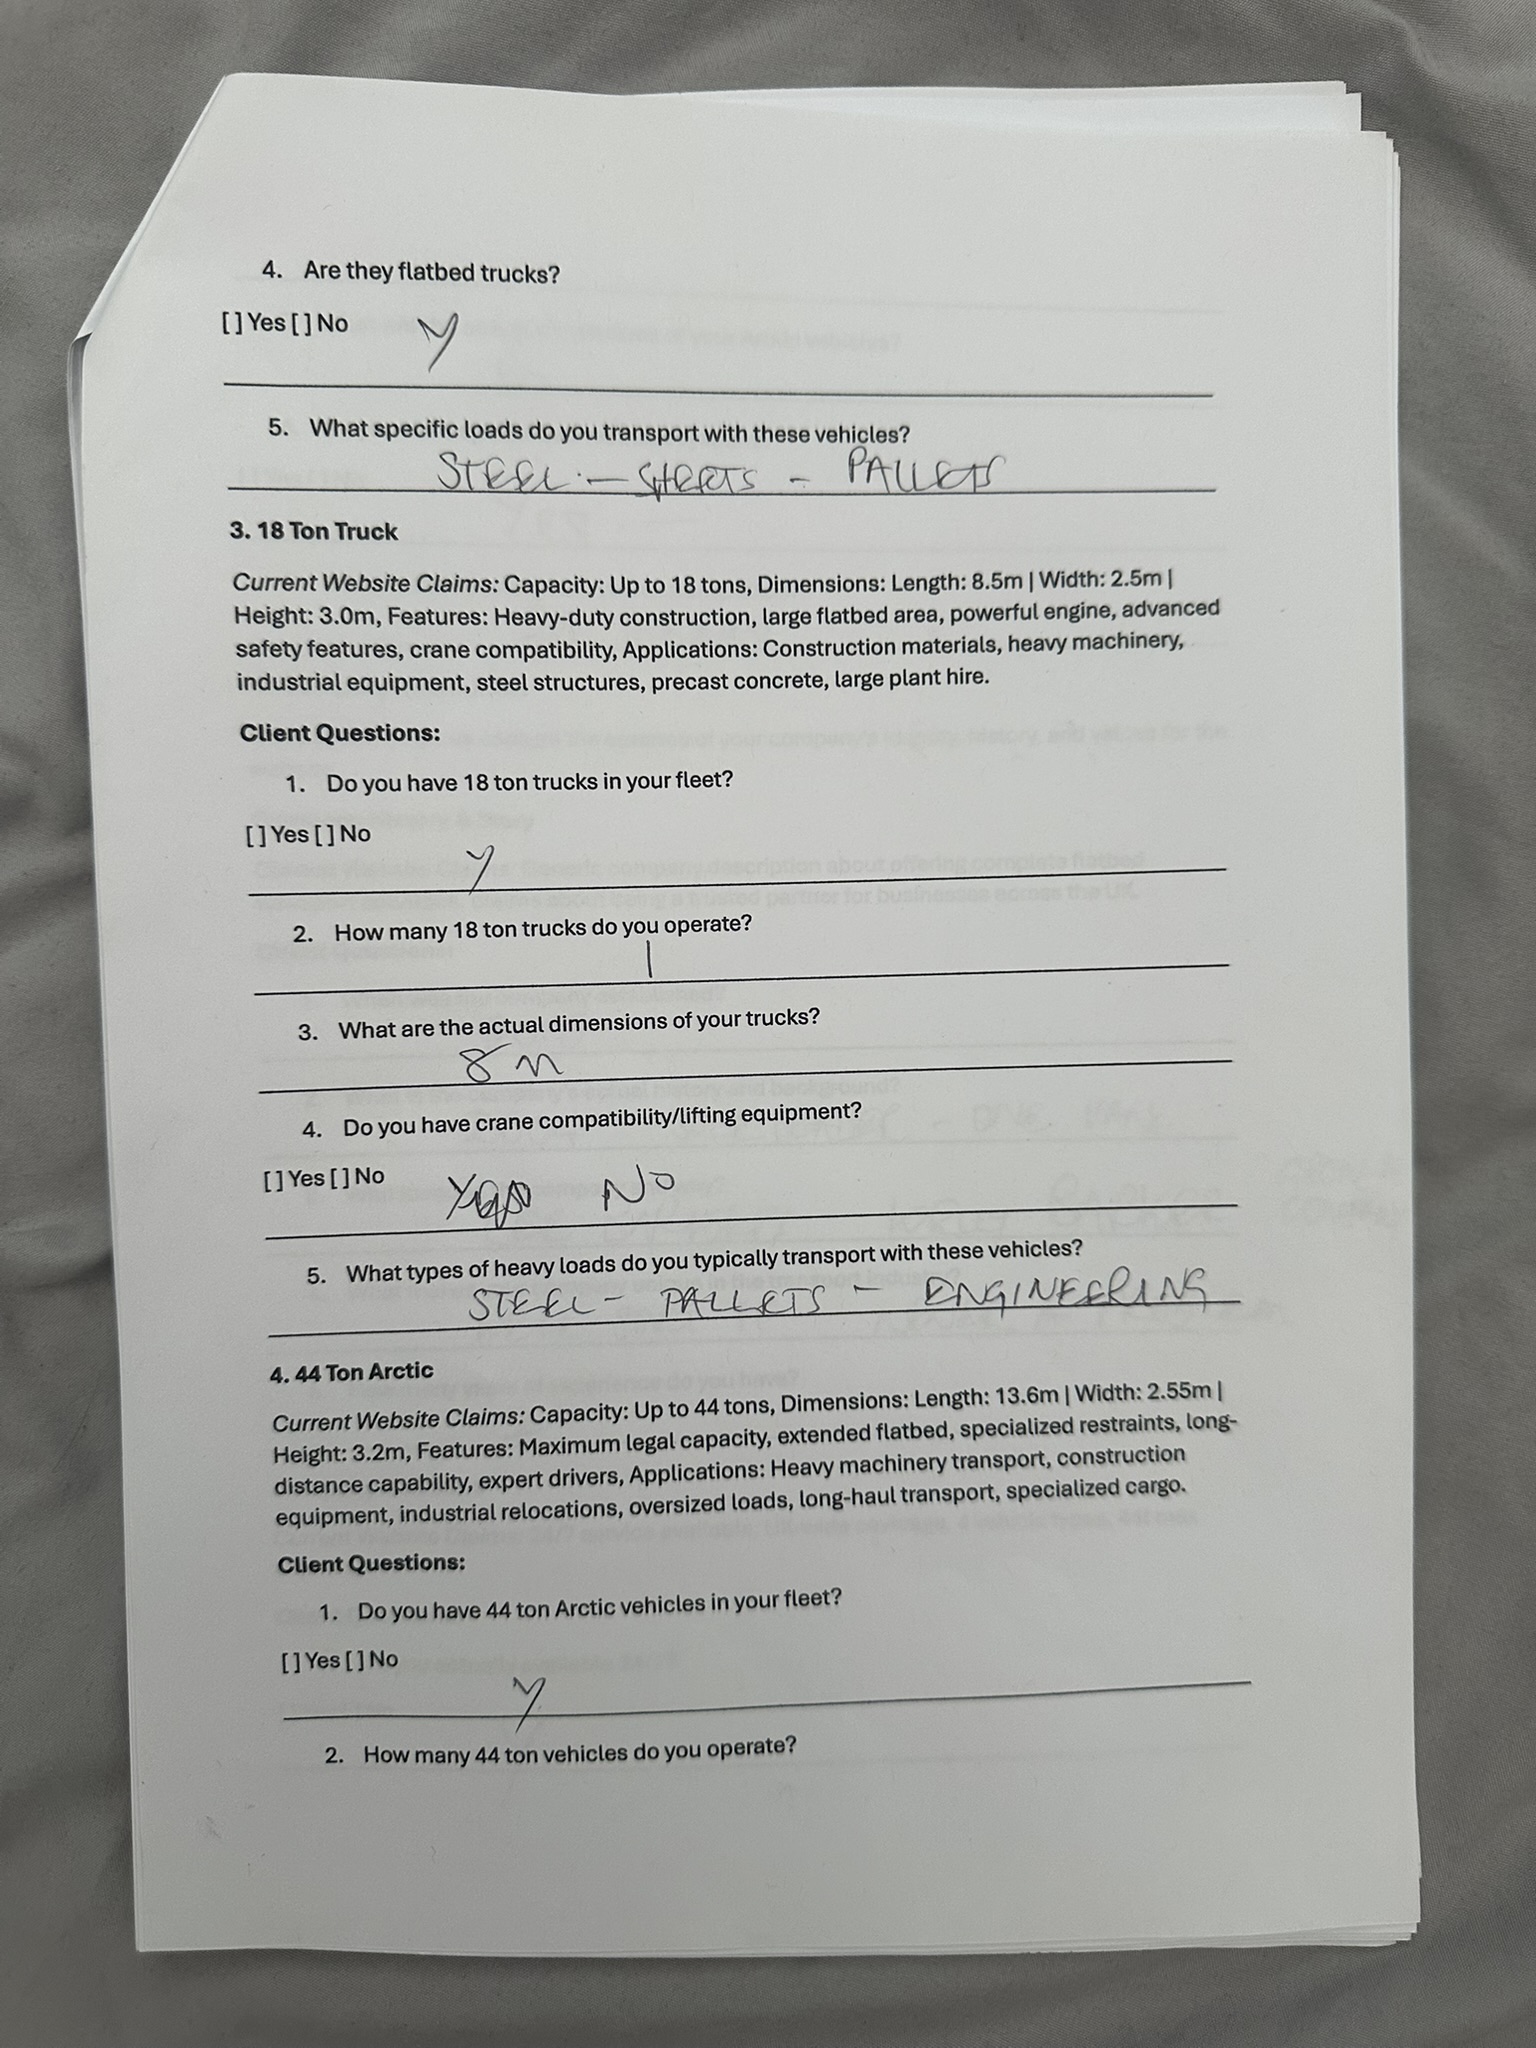 4. Are they flatbed trucks?
[ ] Yes [ ] No Y
5. What specific loads do you transport with these vehicles?
STEEL - SHEETS - PALLETS
3. 18 Ton Truck
Current Website Claims: Capacity: Up to 18 tons, Dimensions: Length: 8.5m | Width: 2.5m |
Height: 3.0m, Features: Heavy-duty construction, large flatbed area, powerful engine, advanced
safety features, crane compatibility, Applications: Construction materials, heavy machinery,
industrial equipment, steel structures, precast concrete, large plant hire.
Client Questions:
1. Do you have 18 ton trucks in your fleet?
[ ] Yes [ ] No
Y
2. How many 18 ton trucks do you operate?
1
3. What are the actual dimensions of your trucks?
8 m
4. Do you have crane compatibility/lifting equipment?
[ ] Yes [ ] No NO
5. What types of heavy loads do you typically transport with these vehicles?
STEEL - PALLETS - ENGINEERING
4. 44 Ton Arctic
Current Website Claims: Capacity: Up to 44 tons, Dimensions: Length: 13.6m | Width: 2.55m |
Height: 3.2m, Features: Maximum legal capacity, extended flatbed, specialized restraints, long-
distance capability, expert drivers, Applications: Heavy machinery transport, construction
equipment, industrial relocations, oversized loads, long-haul transport, specialized cargo.
Client Questions:
1. Do you have 44 ton Arctic vehicles in your fleet?
[ ] Yes [ ] No
Y
2. How many 44 ton vehicles do you operate?